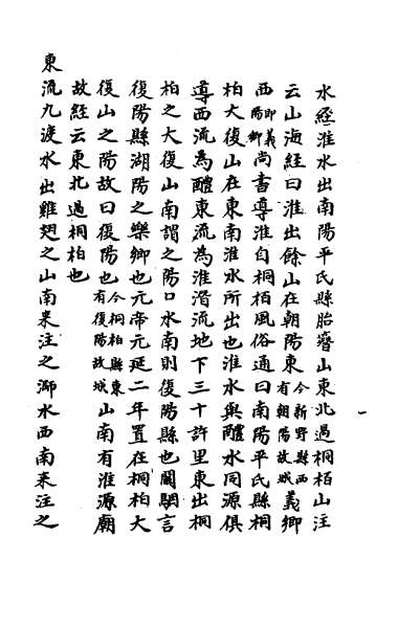 一
水經淮水出南陽平氏縣胎簪山東北過桐栢山注
云山海経曰淮出餘山在朝陽東今新野縣西有朝陽故城義鄉
西即義陽鄉尚書導淮自桐栢風俗通曰南陽平氏縣桐
柏大復山在東南淮水所出也淮水與醴水同源俱
導西流為醴東流為淮潛流地下三十許里東出桐
柏之大復山南謂之陽口水南則復陽縣也闞駰言
復陽縣湖陽之樂鄉也元帝元延二年置在桐柏大
復山之陽故曰復陽也今桐柏縣東有復陽故城山南有淮源廟
故経云東北過桐柏也
東流九渡水出雞翅之山南来注之溮水西南来注之